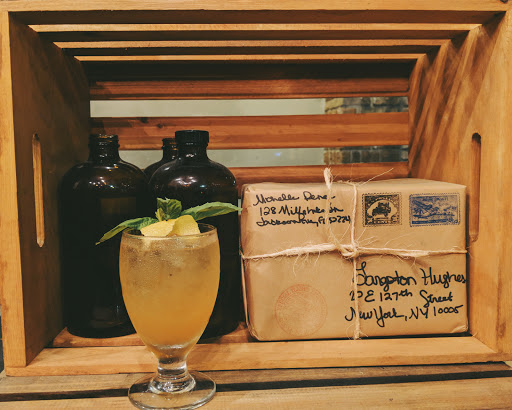 Michelle
128
Jacksonville, Fl 32224
Langston Hughes
20 E 127th Street
New York, NY 10005